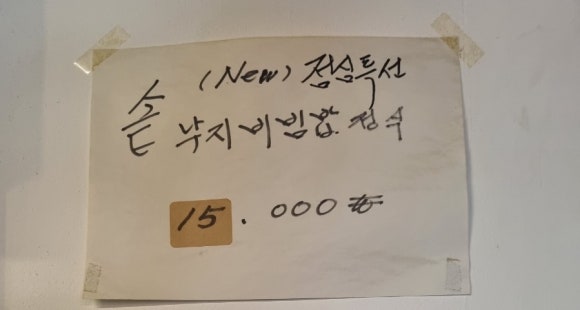 (New) 점심특선
솥 낙지비빔밥 정식
15.000₩